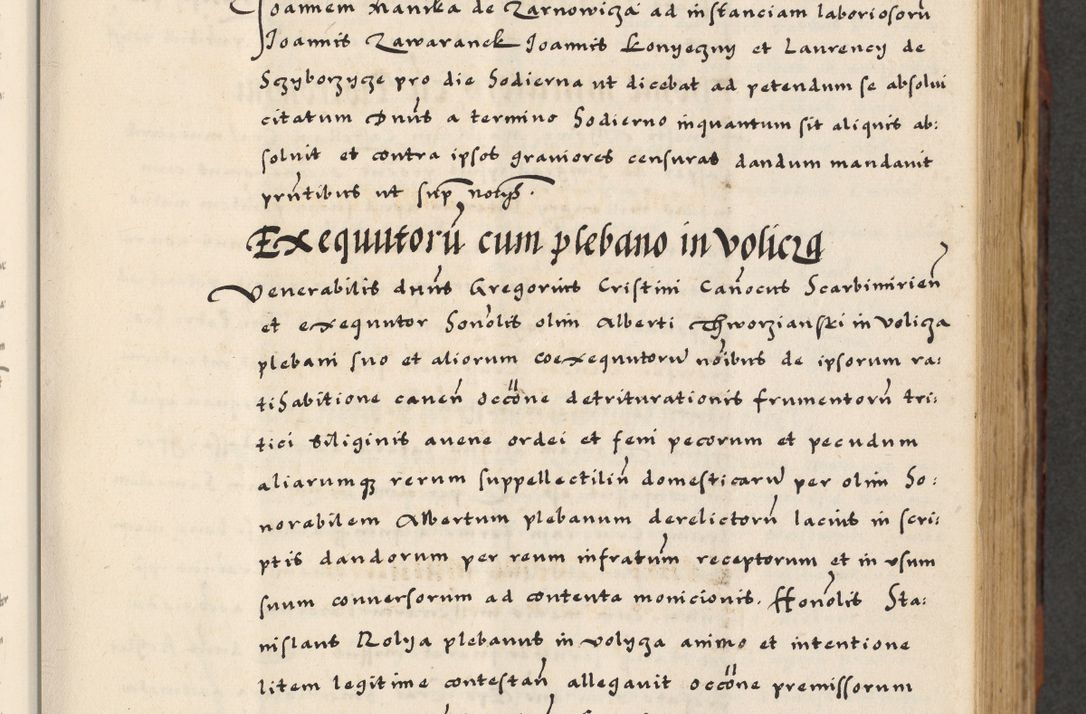 Joannem Manika de Zarnowicza ad instanciam laboriosorũ
Joannis Zawaranek Joannis Konyeczny et Laurency de
Sczyborzycze pro die hodierna ut dicebat ad petendum se absolui
citatum Dnũs a termino hodierno inquantum sit aliquis ab:
soluit et contra ipsos grauiores censuras dandum mandauit
pñtibus ut sup notys.
Exequutorũ cum plebano in Volicza
Venerabilis dnũs Gregorius Cristini Cañocus Scarbimirień
et exequutor honõlis olim Alberti Thworzianski in Volicza
plebani suo et aliorum coexequutorũ nõibus de ipsorum ra:
tihabitione caueñ occõne detriturationis frumentorũ tri:
tici siliginis auene ordei et feni pecorum et pecudum
aliarumqꝫ rerum suppellectiliũ domesticarũ per olim ho:
norabilem Albertum plebanum derelictorũ lacius in scri:
ptis dandorum per reum infratum receptorum et in vsum
suum conuersorum ad contenta monicionis. Honõlis Sta:
nislaus Rolya plebanus in volycza animo et intentione
litem legitime contestañ allegauit occõne premissorum